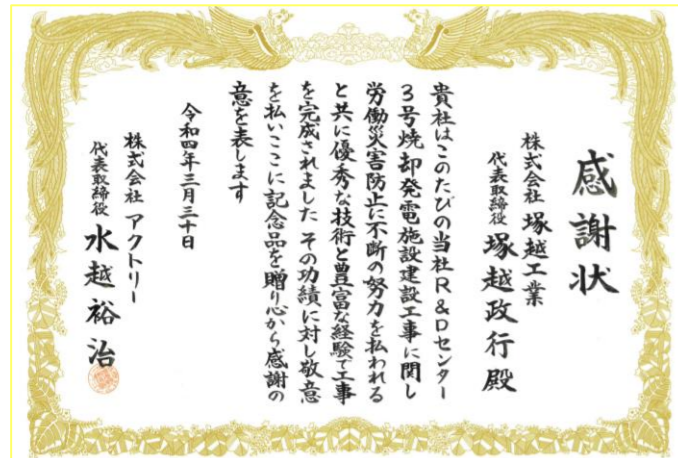 感謝状
株式会社 塚越工業
代表取締役 塚越政行殿
貴社はこのたびの当社R&Dセンター
3号焼却発電施設建設工事に関し
労働災害防止に不断の努力を払われる
と共に優秀な技術と豊富な経験で工事
を完成されました その功績に対し敬意
を払いここに記念品を贈り心から感謝の
意を表します
令和四年三月三十日
株式会社 アクトリー
代表取締役 水越裕治